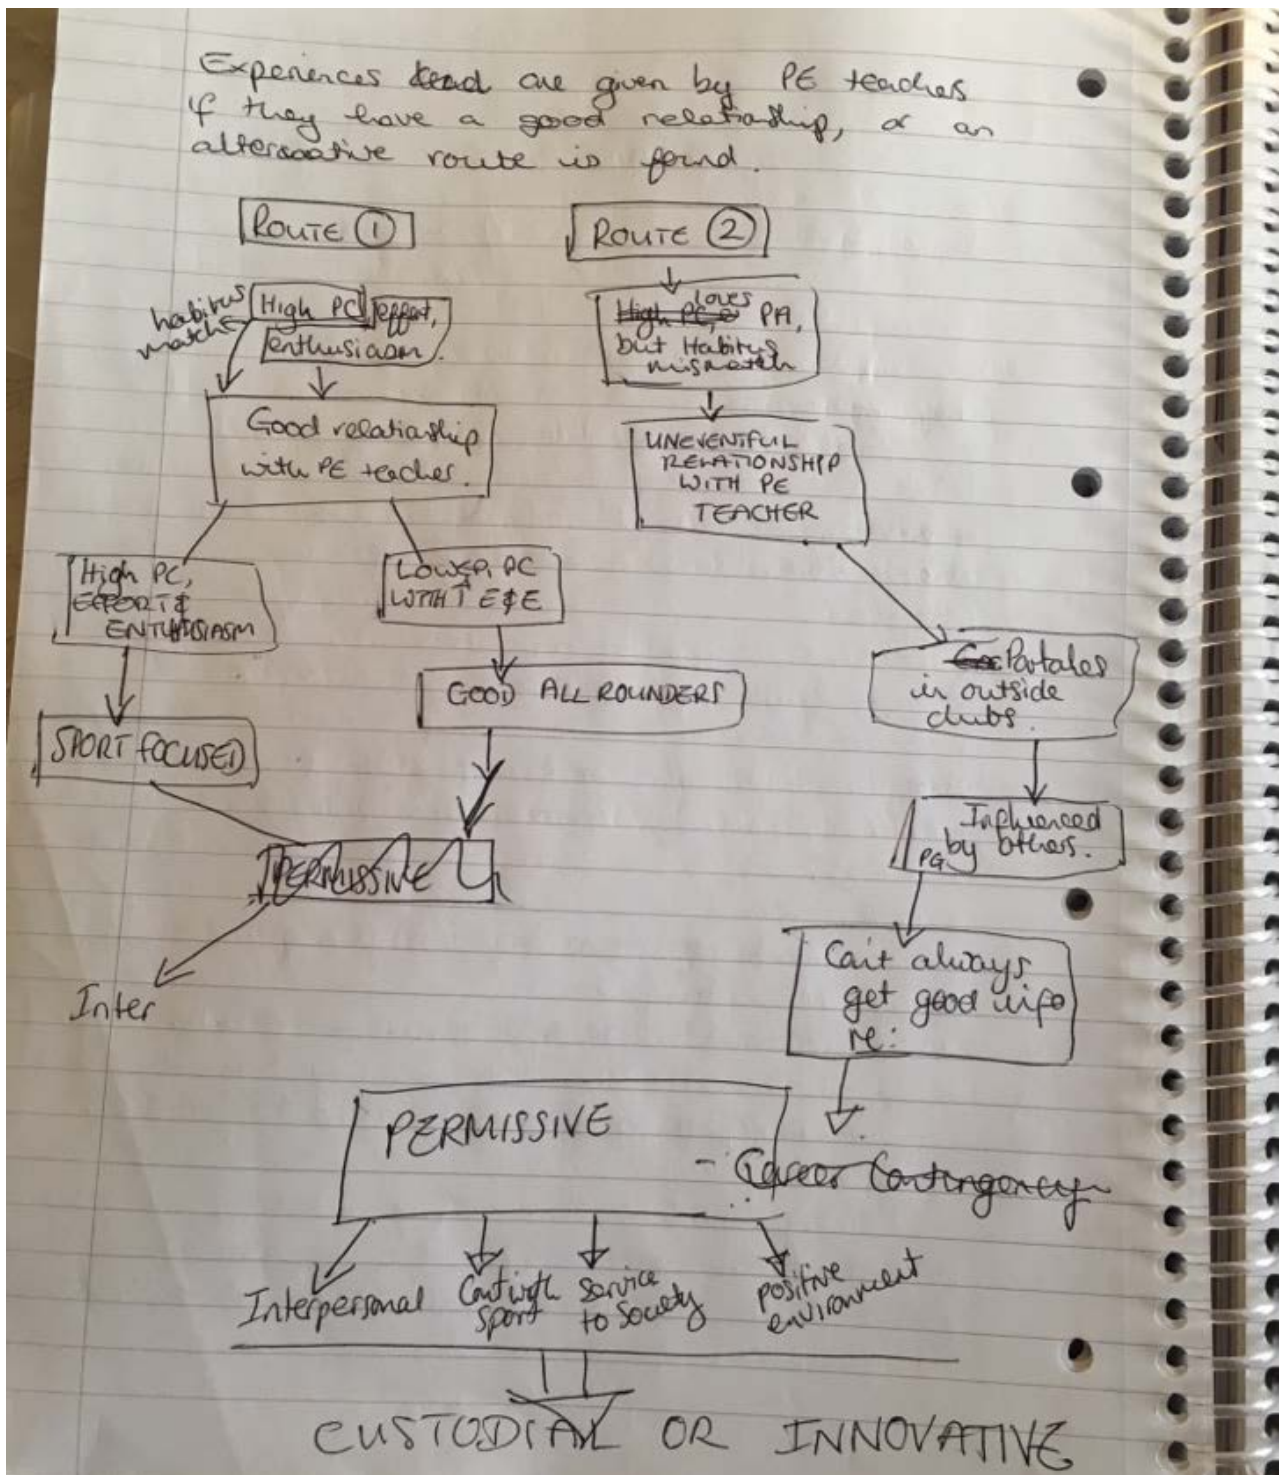 Experiences tend are given by PE teachers
if they have a good relationship, or an
alternative route is found.
ROUTE ①
ROUTE ②
habitus
match
High PC, effort,
enthusiasm.
loves
High PC, PA,
but Habitus
mismatch
Good relationship
with PE teacher.
UNEVENTFUL
RELATIONSHIP
WITH PE
TEACHER
High PC,
EFFORT &
ENTHUSIASM
LOWER PC
WITH ↑ E & E
Partakes
in outside
clubs.
GOOD ALL ROUNDERS
SPORT FOCUSED
Influenced
by others.
PG
PERMISSIVE
Can't always
get good info
re:
Inter
PERMISSIVE
- Career Contingency
Interpersonal
Cont with
sport
Service
to Society
positive
environment
CUSTODIAL OR INNOVATIVE